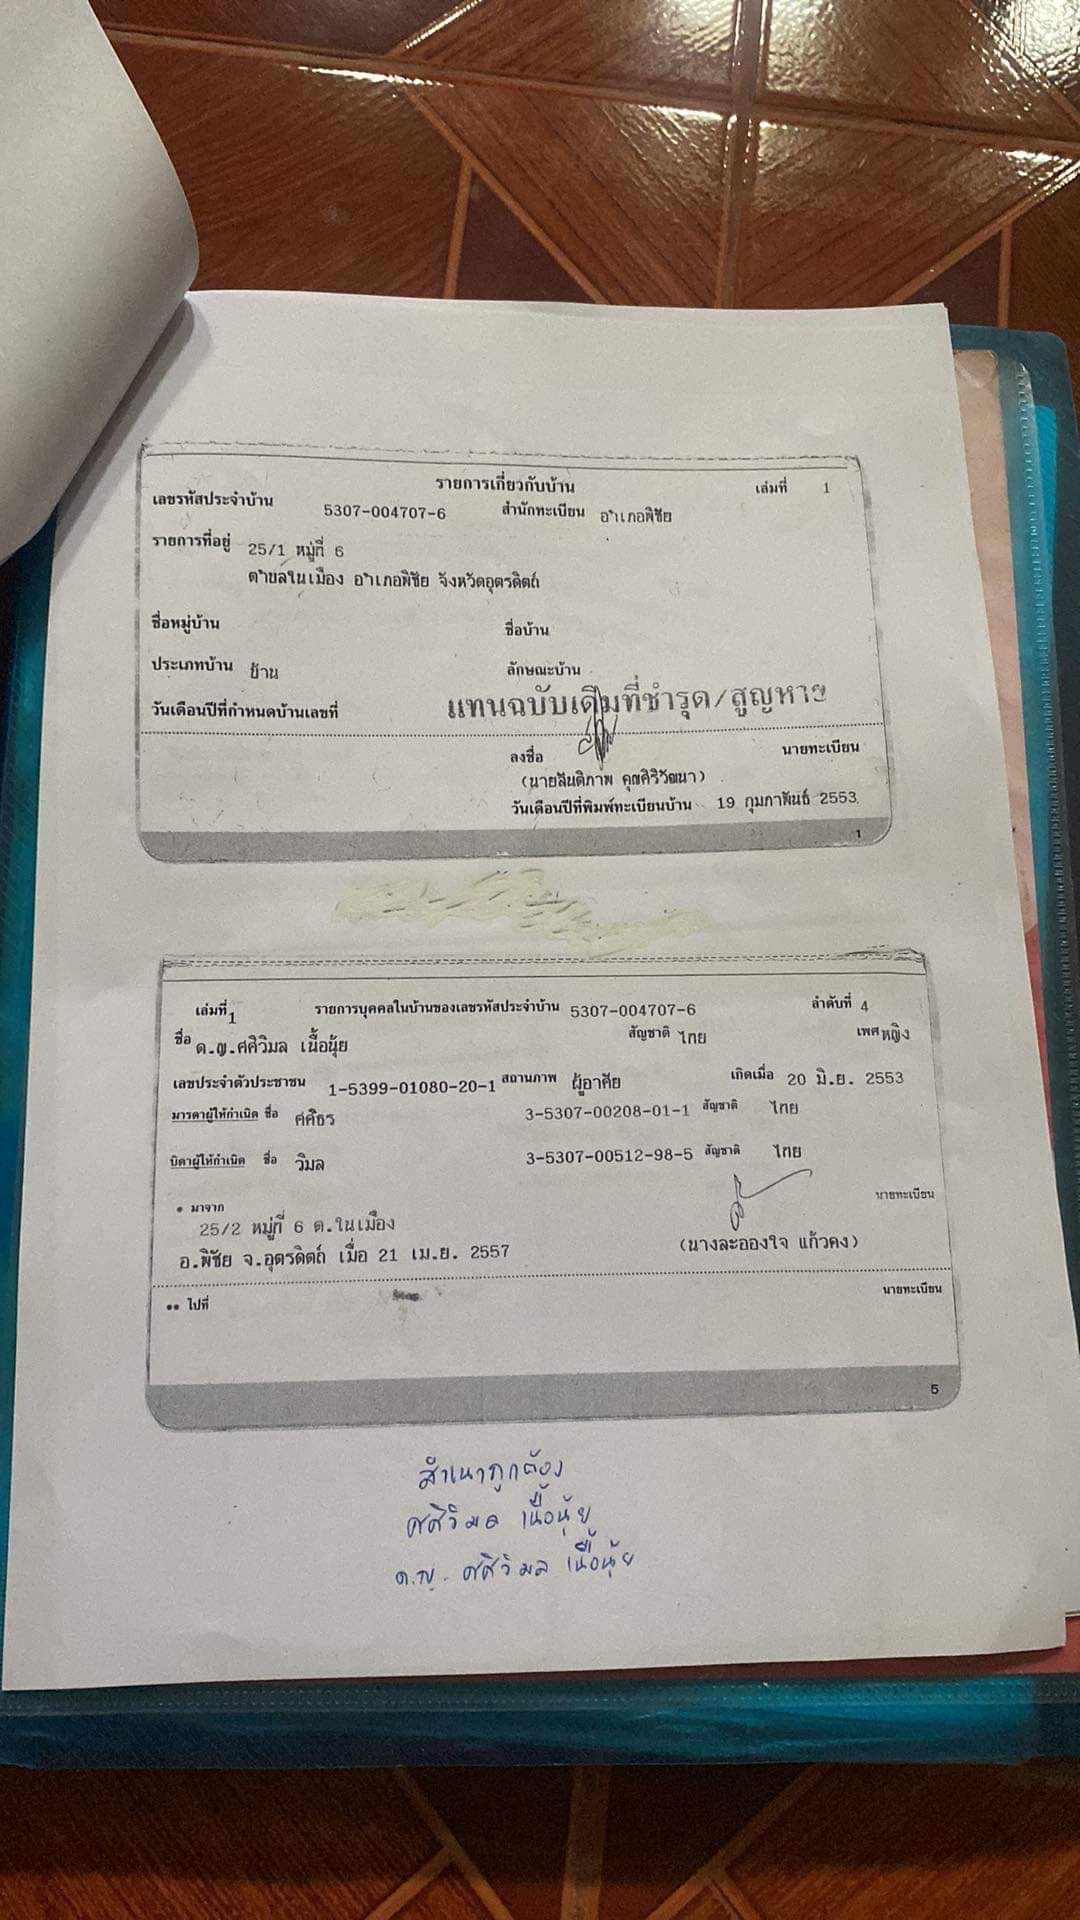 รายการเกี่ยวกับบ้าน เล่มที่ 1
เลขรหัสประจำบ้าน 5307-004707-6 สำนักทะเบียน อำเภอพิชัย
รายการที่อยู่ 25/1 หมู่ที่ 6
ตำบลในเมือง อำเภอพิชัย จังหวัดอุตรดิตถ์
ชื่อหมู่บ้าน ชื่อบ้าน
ประเภทบ้าน บ้าน ลักษณะบ้าน
วันเดือนปีที่กำหนดบ้านเลขที่ แทนฉบับเดิมที่ชำรุด/สูญหาย
ลงชื่อ นายทะเบียน
(นายสันติภาพ คุณศิริวัฒนา)
วันเดือนปีที่พิมพ์ทะเบียนบ้าน 19 กุมภาพันธ์ 2553
1
เล่มที่ 1 รายการบุคคลในบ้านของเลขรหัสประจำบ้าน 5307-004707-6 ลำดับที่ 4
ชื่อ ด.ญ.ศศิวิมล เนื้อนุ้ย สัญชาติ ไทย เพศ หญิง
เลขประจำตัวประชาชน 1-5399-01080-20-1 สถานภาพ ผู้อาศัย เกิดเมื่อ 20 มิ.ย. 2553
มารดาผู้ให้กำเนิด ชื่อ ศศิธร 3-5307-00208-01-1 สัญชาติ ไทย
บิดาผู้ให้กำเนิด ชื่อ วิมล 3-5307-00512-98-5 สัญชาติ ไทย
* มาจาก นายทะเบียน
25/2 หมู่ที่ 6 ต.ในเมือง
อ.พิชัย จ.อุตรดิตถ์ เมื่อ 21 เม.ย. 2557 (นางละอองใจ แก้วคง)
** ไปที่ นายทะเบียน
5
สำเนาถูกต้อง
ศศิวิมล เนื้อนุ้ย
ด.ญ. ศศิวิมล เนื้อนุ้ย